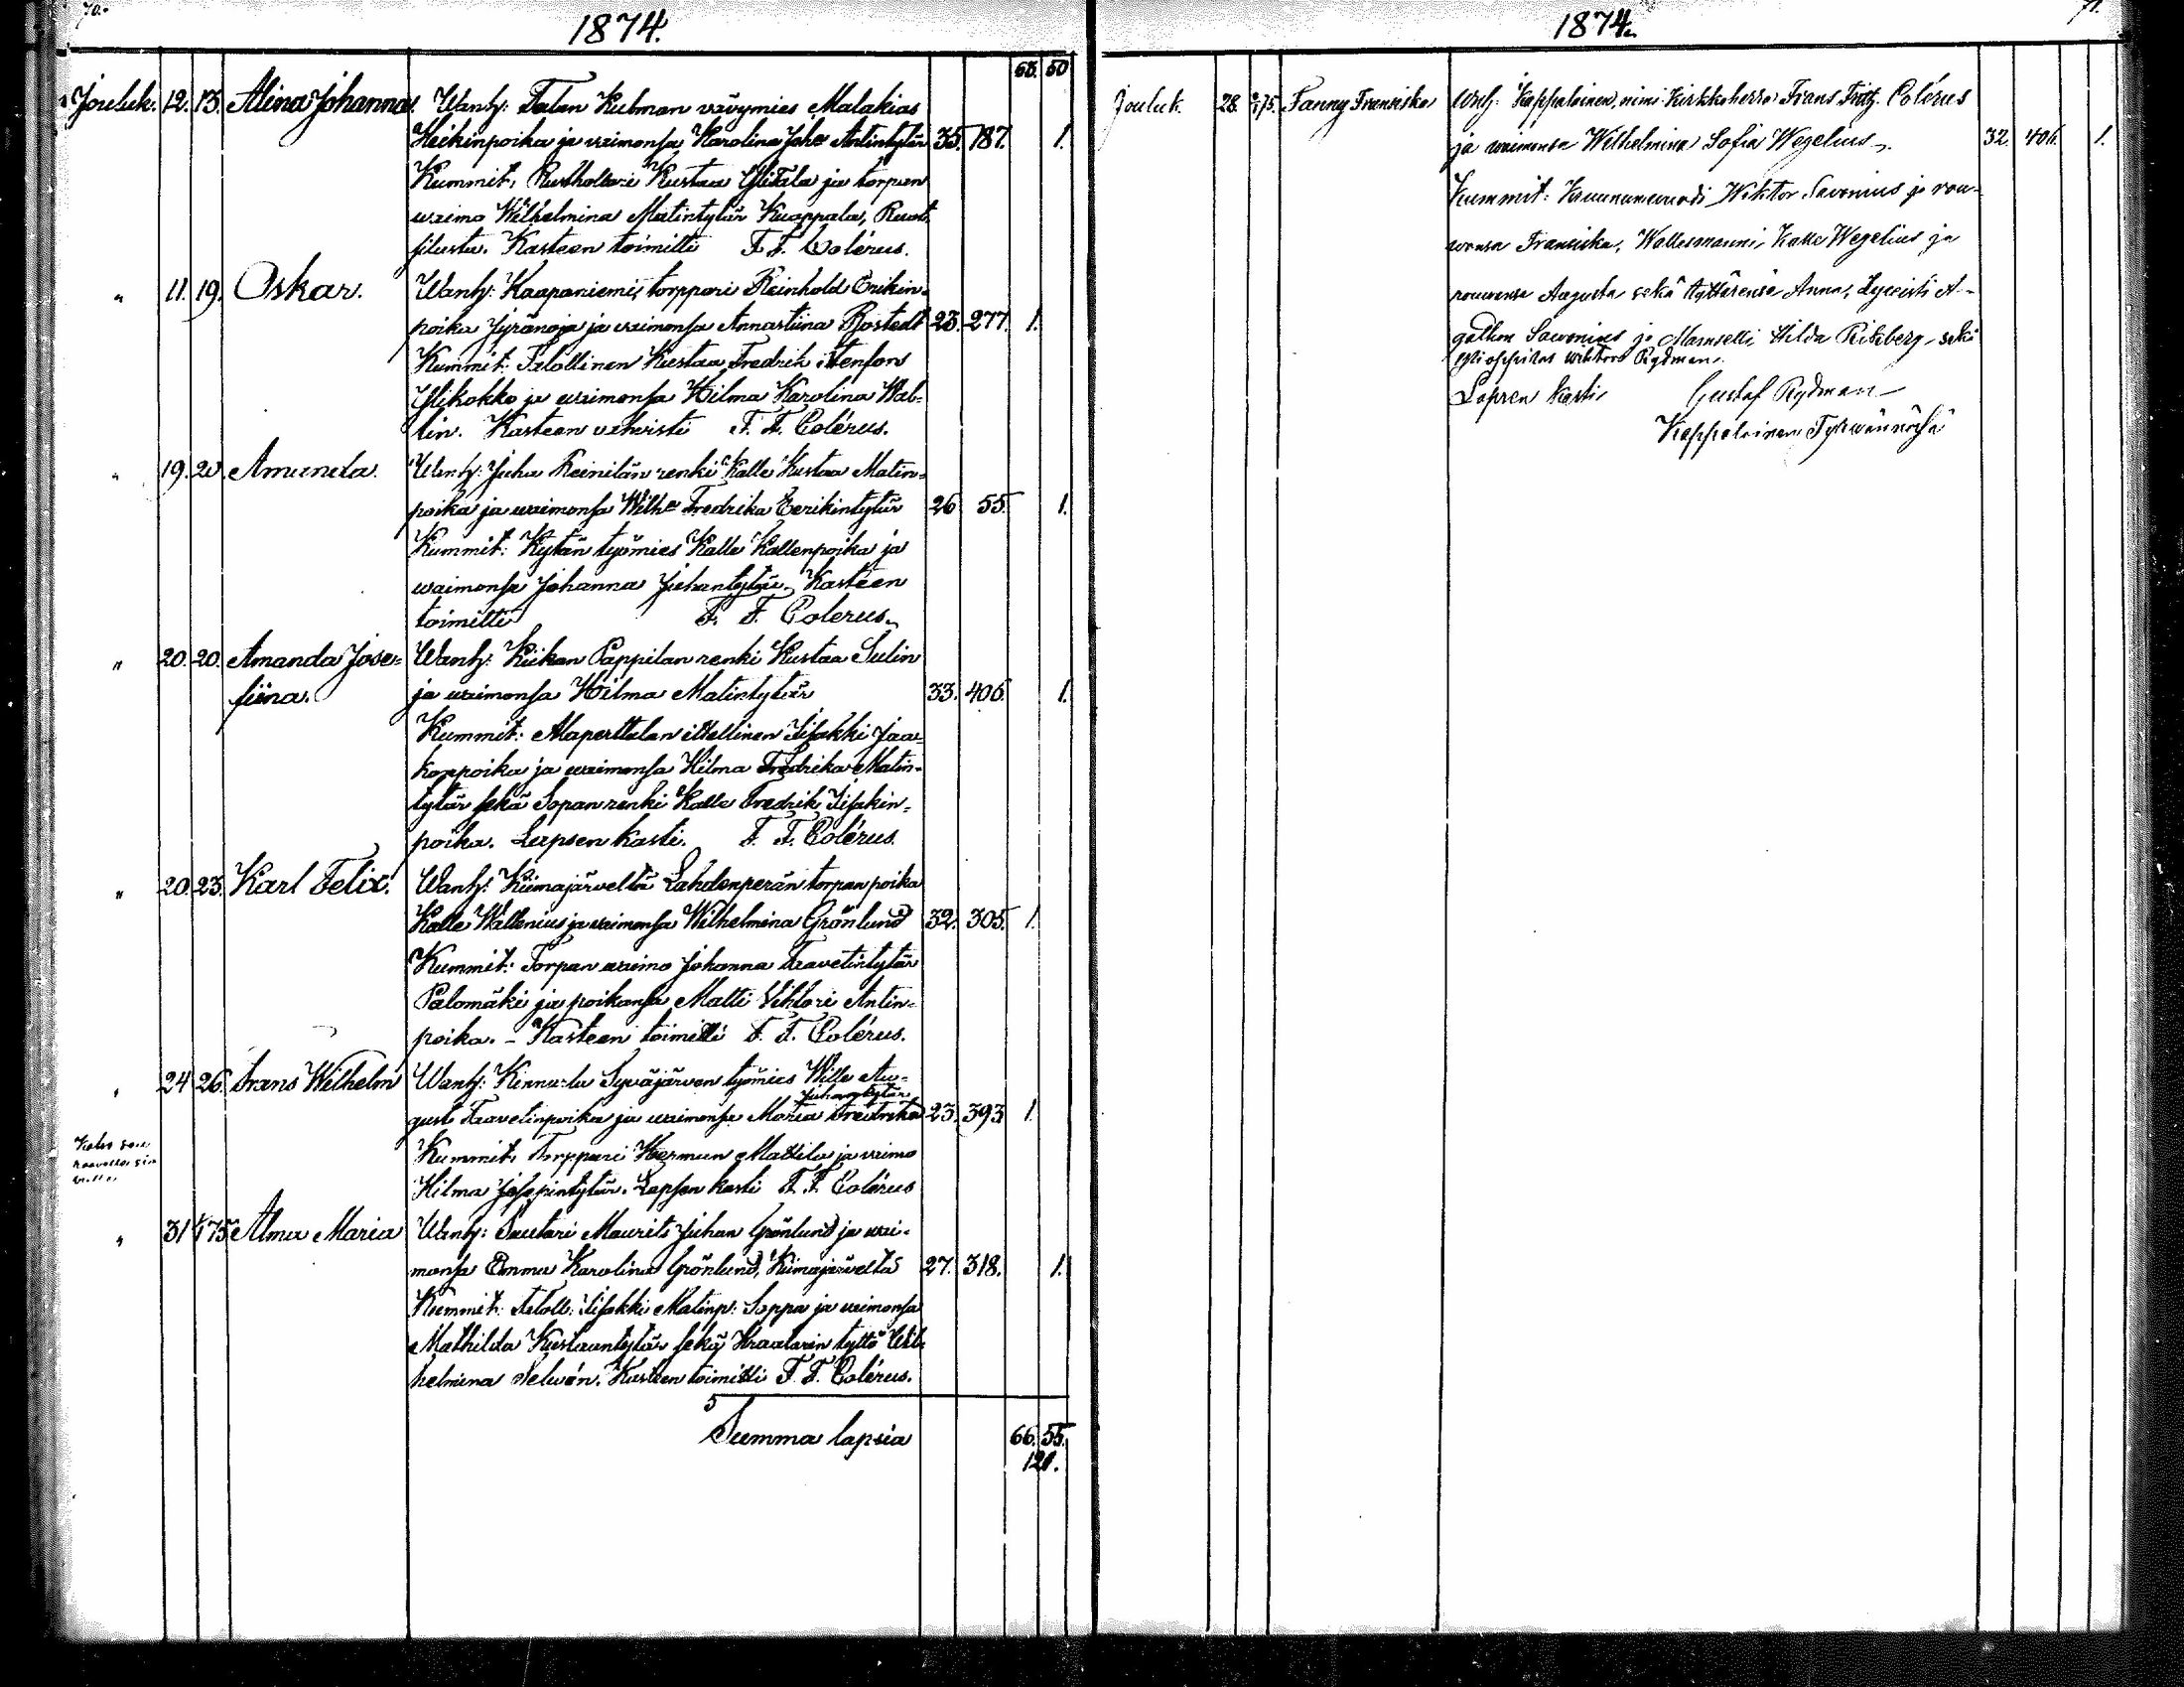 70.
1874.
63. 50
Jouluk. 12. 13. Alina Johanna. Wanh: Talan Kulman vävymies Malakias
Heikinpoika ja waimonsa Karolina Joha Antintytär 35. 187. 1.
Kummit: Rusthollari Kustaa Ylitalo ja torpan
waimo Wilhelmina Matintytär Kuoppala,
Kasteen toimitti F. F. Colérus.
" 11. 19. Oskar. Wanh: Kaapaniemi, torppari Reinhold Erikin-
poika Jyränoja ja waimonsa Annastiina Bostedt 23. 277. 1.
Kummit: Talollinen Kustaa Fredrik Stenfors
Ylikokko ja waimonsa Hilma Karolina Wal-
lin. Kasteen vahvisti F. F. Colérus.
" 19. 20. Amanda. Wanh: Juha Heinilän renki Kalle Kustaa Matin-
poika ja waimonsa Wilha Fredrika Eerikintytär 26 55. 1.
Kummit: Kytän työmies Kalle Kallenpoika ja
waimonsa Johanna Juhantytär. Kasteen
toimitti F. F. Colerus.
" 20. 20. Amanda Jose- Wanh: Kiikan Pappilan renki Kustaa Sulin
fiina. ja waimonsa Hilma Matintytär 33. 406. 1.
Kummit: Alaperttulan itsellinen Iisakki Jaa-
konpoika ja waimonsa Hilma Fredrika Matin-
tytär sekä Sopan renki Kalle Fredrik Iisakin-
poika. Lapsen kasti. F. F. Colérus.
" 20. 23. Karl Felix. Wanh: Kiimajärveltä Lahdenperän torpan poika
Kalle Wallenius ja waimonsa Wilhelmina Grönlund 32. 305. 1.
Kummit: Torpan waimo Johanna Taavetintytär
Palomäki ja poikansa Matti Vihtori Antin-
poika. - Kasteen toimitti F. F. Colérus.
" 24 26. Frans Wilhelm Wanh: Kennala Syväjärven työmies Wille Au-
Juhantytär
gust Taavetinpoika ja waimonsa Maria Fredrika 23. 393 1.
Kummit: Torppari Herman Mattila ja waimo
Hilma Josepintytär. Lapsen kasti F. F. Colérus
" 31 1/1 75 Alma Maria Wanh: Suutari Maurits Juhan Grönlund ja wai-
monsa Emma Karolina Grönlund, Kiimajärveltä 27. 318. 1.
Kummit: Taloll: Iisakki Matinp: Soppa ja waimonsa
Mathilda Kustaantytär sekä Kraatarin tyttö Wil-
helmina Kasteen toimitti F. F. Colérus.
Summa lapsia 66. 55.
121.
71.
1874.
Jouluk. 28. 75. Fanny Fransiska Wnh: Kappalainen, nimi. Kirkkoherra Frans Fritz. Colérus
ja waimonsa Wilhelmina Sofia Wegelius. 32. 406. 1.
Kummit: Kruununvouti Wiktor Savonius ja rou-
wansa Fransiska, Wallesmanni Kalle Wegelius ja
rouwansa Augusta sekä tyttärensä Anna, Lyseisti A-
gathon Sawonius ja Mamselli Hilda Riksberg, sekä
Ylioppilas Wiktor Rydman.
Lapsen kasti Gustaf Rydman
Kappalainen Tyrwäänössä